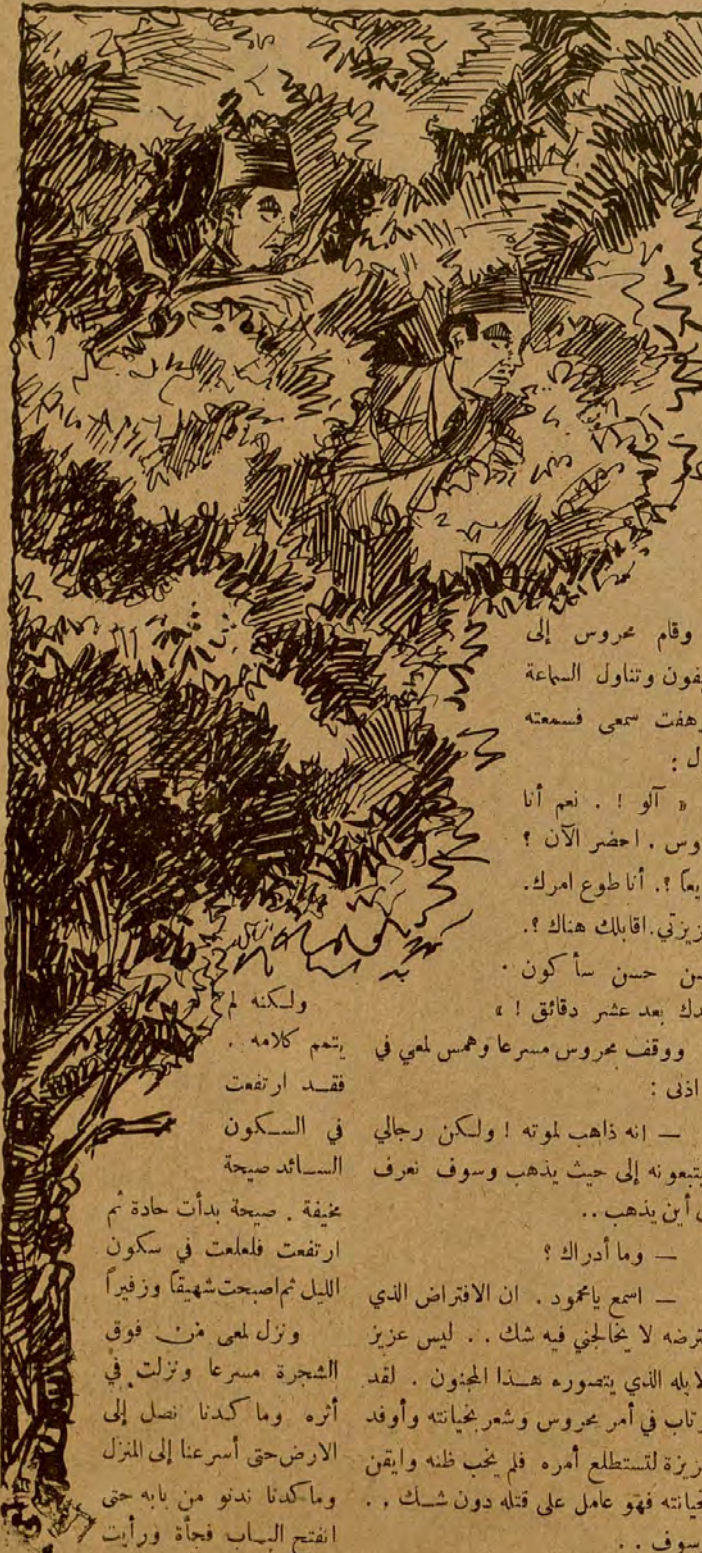 وقام محروس إلى
يفون وتناول السماعة
رهفت سمعى فسمعته
ل :
« آلو ! . نعم أنا
وس . احضر الآن ؟
يعاً ؟. أنا طوع امرك.
زيزتي. اقابلك هناك ؟.
سن حسن سأكون .
دك بعد عشر دقائق ! »
ووقف محروس مسرعا وهمس لمعي في
اذنى :
— انه ذاهب لموته ! ولكن رجالي
يتبعونه إلى حيث يذهب وسوف نعرف
ى أين يذهب ..
— وما أدراك ؟
— اسمع يامحمود . ان الافتراض الذي
ترضه لا يخالجني فيه شك . . ليس عزيز
لابله الذي يتصوره هذا المجنون . لقد
رتاب في أمر محروس وشعر بخيانته وأوفد
زيزة لتستطلع أمره فلم يخب ظنه وايقن
خيانته فهو عامل على قتله دون شك . .
سوف . .
ولكنه لم
يتمم كلامه .
فقد ارتفعت
في السكون
السائد صيحة
مخيفة . صيحة بدأت حادة ثم
ارتفعت فلعلعت في سكون
الليل ثم اصبحت شهيقاً وزفيراً
ونزل لمعى من فوق
الشجرة مسرعا ونزلت في
أثره وما كدنا نصل إلى
الارض حتى أسرعنا إلى المنزل
وما كدنا ندنو من بابه حتى
انفتح الباب فجأة ورأيت